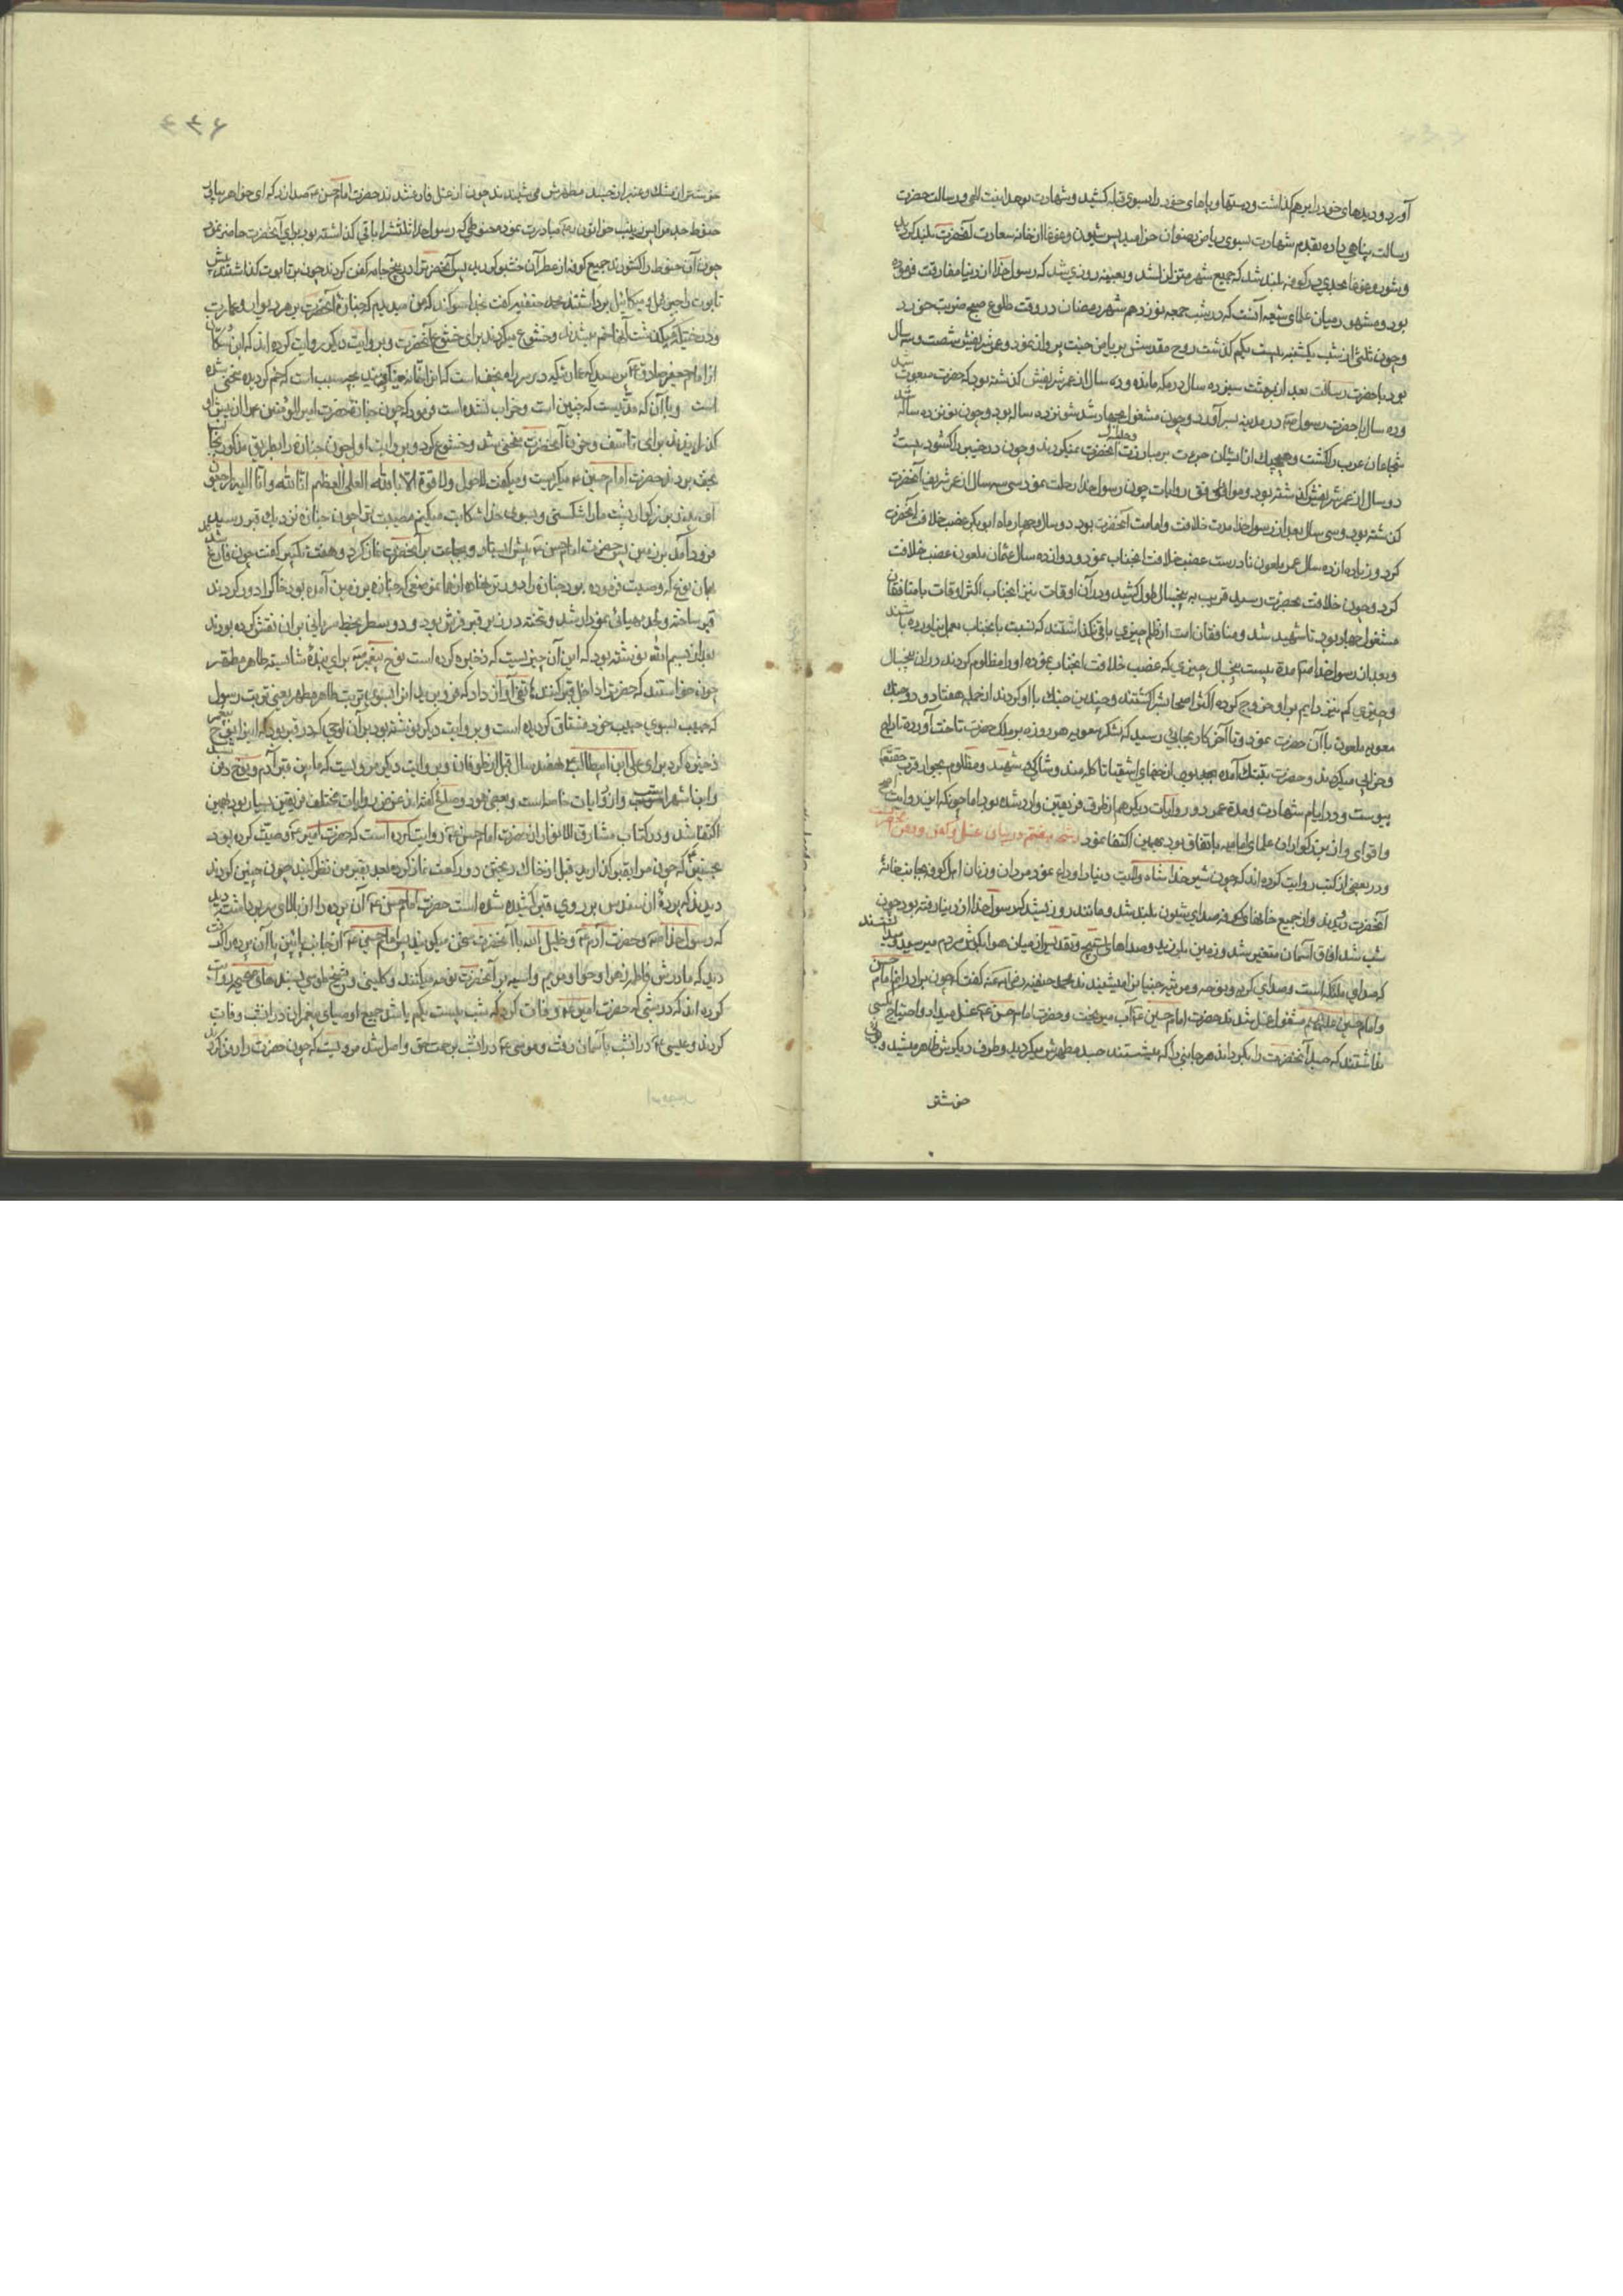 آورد و دیدهای خود را برهم گذاشت و دستها و پاهای خود را بسوی قبله کشید و شهادت بوحدانیت الهی و رسالت حضرت
رسالت پناهی داده بقدم شهادت بسوی ریاض رضوان خرامید پس شیون و غوغا از خانه سعادت آنحضرت بلند گردید
و شور و غوغا بحدی در کوفه بلند شد که جمیع شهر متزلزل شد و بعینه روزی شد که رسول خدا از دنیا مفارقت فرموده
بود و مشهور میان علمای شیعه آنست که در شب جمعه نوزدهم شهر رمضان در وقت طلوع صبح ضربت خورد
و چون ثلثی از شب یکشنبه بیست یکم گذشت روح مقدسش بریاض جنت پرواز نمود و عمر شریفش شصت و سه سال
بود با حضرت رسالت بعد از بعثت سیزده سال در مکه مانده و ده سال از عمر شریفش گذشته بود که حضرت مبعوث شد
و ده سال با حضرت رسول ص در مدینه بسر آورد و چون مشغول بجهاد شد شونزده ساله بود و چون نوزده ساله شد
شجاعان عرب را کشت و هیچیک از ایشان جرءت بر مبارزت آنحضرت نمیکردند و چون در خیبر را کشود بیست و
دو سال از عمر شریفش گذشته بود و موافق روایات چون رسول خدا رحلت نمود سی سه سال از عمر شریف آنحضرت
گذشته بود و سی سال بعد از رسول خدا مدت خلافت و امامت آنحضرت بود دو سال و چهار ماه ابی بکر غصب خلافت آنحضرت
کرد و زیاده از ده سال عمر ملعون نادرست غصب خلافت انجناب نمود و دوازده سال عثمان ملعون غصب خلافت
کرد و چون خلافت بحضرت رسید قریب به پنجسال طول کشید و در آن اوقات نیز انجناب اکثر اوقات با منافقان
مشغول جهاد بود تا شهید شد و منافقان امت از ظلم چیزی باقی نگذاشتند که نسبت بانجناب بعمل نیاورده باشند
و بعد از رسول خدا مدة بیست پنجسال چیزی که غصب خلافت انجناب نموده او را مظلوم کردند در ان پنجسال
و چیزی کم نیز دایم براو خروج کرده اکثر اصحابش را کشتند و چندین جنك با او کردند از جمله هفتاد و دو جنك
معویه ملعون با آن حضرت نمود و تا آخر کار بجایی رسید که لشکر معویه هر روزه بر ملك حضرت تاخت آورده تاراج
و خرابی میکردند و حضرت بتنك آمده بود از جفای اشقیا تا گله مند و شاکی و شهید و مظلوم بجوار قرب حقتعالی
پیوست و در ایام شهادت و مدة عمر دو روایات دیگر هم از طرف فریقین وارد شده بود اما چونکه این روایت اصح
و اقوای و از بزرگواران علمای امامیه باتفاق بود بهمین اکتفا نمود رشحه هفتم در بیان غسل و کفن و دفن آنحضرت
و در بعضی از کتب روایت کرده اند که چون شیر خدا شاه ولایت دنیا را وداع نمود مردان و زنان اهل کوفه بجانب خانه
آنحضرت دویدند و از جمیع خانهای کوفه صدای شیون بلند شد و مانند روزی شد که رسول خدا از دنیا رفته بود چون
شب شد افاق آسمان متغیر شد و زمین بلرزید و صداهای تسبیح و تقدیس از میان هوا بگوش مردم میرسید میدانستند
که صدای ملائکه است و صدای گریه و نوحه و مرثیه جنیان نیز میشنیدند محمد حنفیه رضی الله عنه گفت که چون برادرانم امام حسن
و امام حسین علیهم مشغول غسل شدند حضرت امام حسین ع آب میریخت و حضرت امام حسن ع غسل میداد و احتیاج بکسی
نداشتند که جسد آنحضرت را بگرداند هر جانبی را که میشستند جسد مطهرش میگردید و طرف دیگرش ظاهر میشد و بوی
خوشتر
۴۳۶
خوشتر از مشك و عنبر از جسد مطهرش می شنیدند چون از غسل فارغ شدند حضرت امام حسن ع صدا زد که ای خواهر بیاور
حنوط جد مرا پس زینب خواتون مبادرت نموده حنوطی که رسول خدا ثلثش را باقی گذاشته بود برای آنحضرت حاضر نمود
چون آن حنوط را کشودند جمیع کوفه از عطر آن خشبو گردید پس آنحضرت را در پنج جامه کفن کردند چون بر تابوت گذاشتند پیش
تابوت را جبرئیل و میکائیل برداشتند محمد حنفیه گفت بخدا سوگند که من میدیدم که جنازة آنحضرت بر هر دیوار و عمارت
و درختیکه میگذشت آنها خم میشدند و خشوع میکردند برای خشوع آنحضرت و بروایت دیگر روایت کرده اند که ابن سکان
از امام جعفر صادق ع پرسید که عمارتیکه در سر راه نجف است که انرا قائمه میگویند بچه سبب است که خم گردیده منحنی شده
است و با آنکه مدتیست که چنین است و خراب نشده است فرمود که چون جنازة حضرت امیر المؤمنین ع را از پیش او
گذرانیدند برای تاسف و حزن آنحضرت منحنی شد و خشوع کرد و بروایت اول چون جنازه را بطریق مذکور بجانب
نجف بردند حضرت امام حسین ع میگریست و میگفت لا حول ولا قوة الا بالله العلی العظیم انا لله و انا الیه راجعون
ای پدر بزرگوار پشت ما را شکستی و بسوی خدا شکایت میکنم مصیبت ترا چون جنازه نزدیك قبر رسید
فرود آمد بزمین پس حضرت امام حسن ع پیش ایستاد و بجماعت بر آنحضرت نماز کرد و هفت تکبیر گفت چون فارغ شد
بهمان نوع که وصیت فرموده بود جنازه را دورتر نهاده از همان موضعی که جنازه بزمین آمده بود خاك را دور کردند
قبر ساخته و لحد مهیائی نمودار شد و تخته در زیر قبر فرش بود و دو سطر بخط سریانی بر ان نقش کرده بودند
بعد از بسم الله نوشته بود که این آن چیزیست که ذخیره کرده است نوح پیغمبر برای بندة شایسته طاهر مطهر
چون خواستند که حضرت را داخل قبر کنند هاتفی آواز داد که فرو برید او را بسوی تربت طاهر مطهر یعنی تربت رسول
که حبیب بسوی حبیب خود مشتاق گردیده است و بروایت دیگر نوشته بود بر آن لوحی که در قبر بود که این را نوح پیغمبر
ذخیره کرد برای علی ابن ابیطالب ع هفتصد سال قبل از طوفان و بروایت دیگر مرویست که مابین قبر آدم و نوح دفن شد
اکتفا شد و در کتاب مشارق الانوار از حضرت امام حسن ع روایت کرده است که حضرت امیر ع وصیت کرده بود
بحسنین که چون مرا بقبر گذارید قبل از خاك ریختن دو رکعت نماز کرده بعد بقبر من نظر کنید چون چنین کردند
دیدند که پردة از سندس بر روی قبر کشیده شده است حضرت امام حسن ع آن پرده را از بالای سر برداشته دید
که رسول خدا ص و حضرت آدم ع و خلیل الله با آنحضرت سخن میگویند پس امام حسین ع از جانب پائین پا آن پرده را
دید که مادرش فاطمه زهرا و حوا و مریم و اسیه بر آنحضرت نوحه میکنند و کلینی و شیخ طوسی بسندهای معتبر روایت
کرده اند که در شبی که حضرت امیر ع وفات کرد که شب بیست یکم باشد جمیع اوصیای پیغمبران در انشب وفات
کردند و عیسی ع در انشب بآسمان رفت و موسی ع در انشب برحمت حق واصل شد مرویست که چون حضرت را دفن کردند